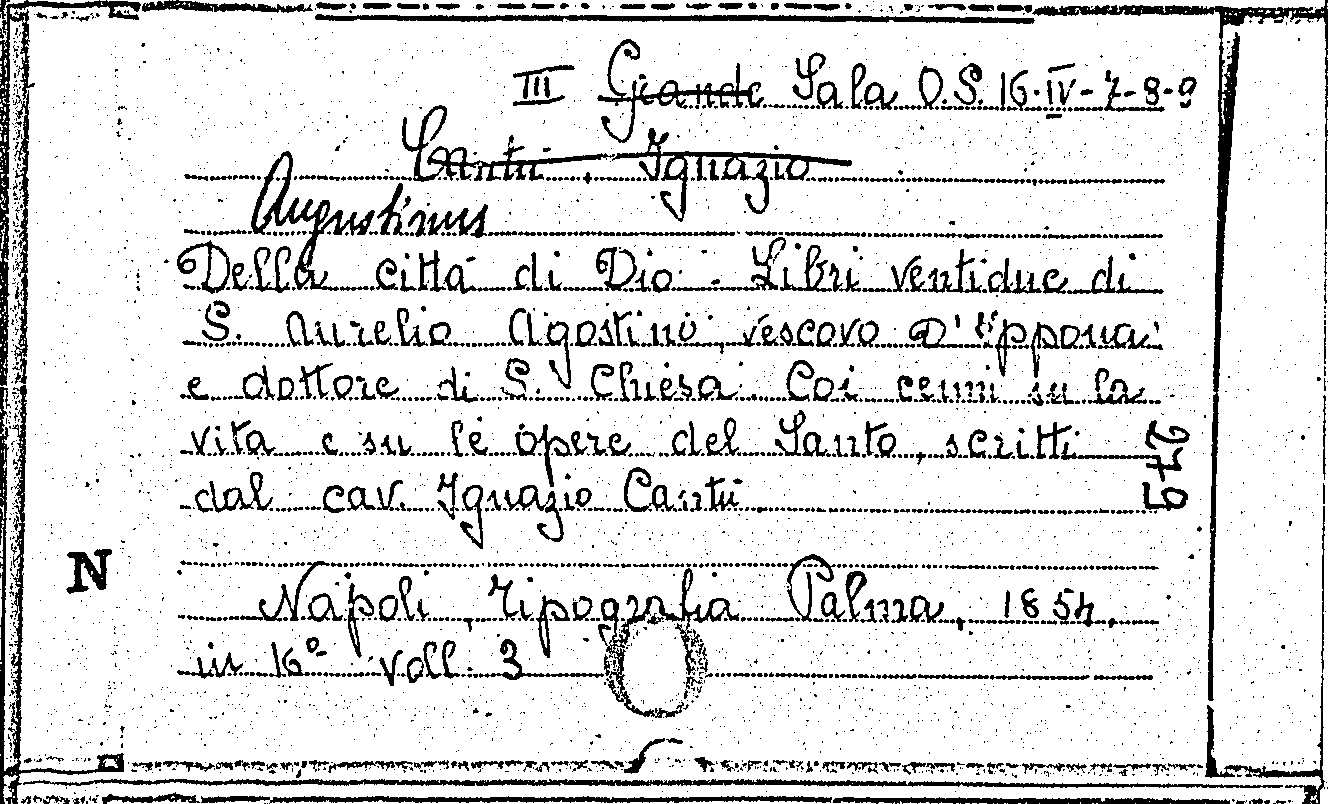 III Grande Sala O.S. 16-IV-7-8-9
Cantù, Ignazio
Augustinus
Della città di Dio. Libri ventidue di
S. Aurelio Agostino, vescovo d'Ippona
e dottore di S. Chiesa. Coi cenni su la
vita e su le opere del Santo, scritti
dal cav. Ignazio Cantù.
279
N
Napoli, Tipografia Palma, 1854.
in 16º voll. 3